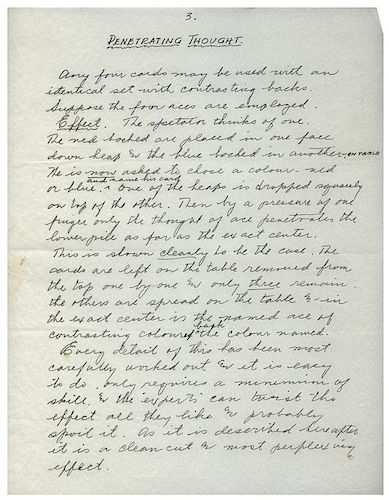 3.
PENETRATING THOUGHT.
Any four cards may be used with an
identical set with contrasting backs.
Suppose the four aces are employed.
Effect. The spectator thinks of one.
The red backed are placed in one face
down heap & the blue backed in another - ON TABLE
He is now asked to chose a colour - red
or blue, and name his card. One of the heaps is dropped squarely
on top of the other. Then by a pressure of one
finger only the thought of ace penetrates the
lower pile as far as the exact center.
This is shown cleanly to be the case. The
cards are left on the table removed from
the top one by one & only three remain.
the others are spread on the table & in
the exact center is the named ace of
contrasting coloured back the colour named.
Every detail of this has been most
carefully worked out & it is easy
to do. only requires a minimum of
skill. & the expert can twist the
effect all they like & probably
spoil it. As it is described hereafter
it is a clean cut & most perplexing
effect.